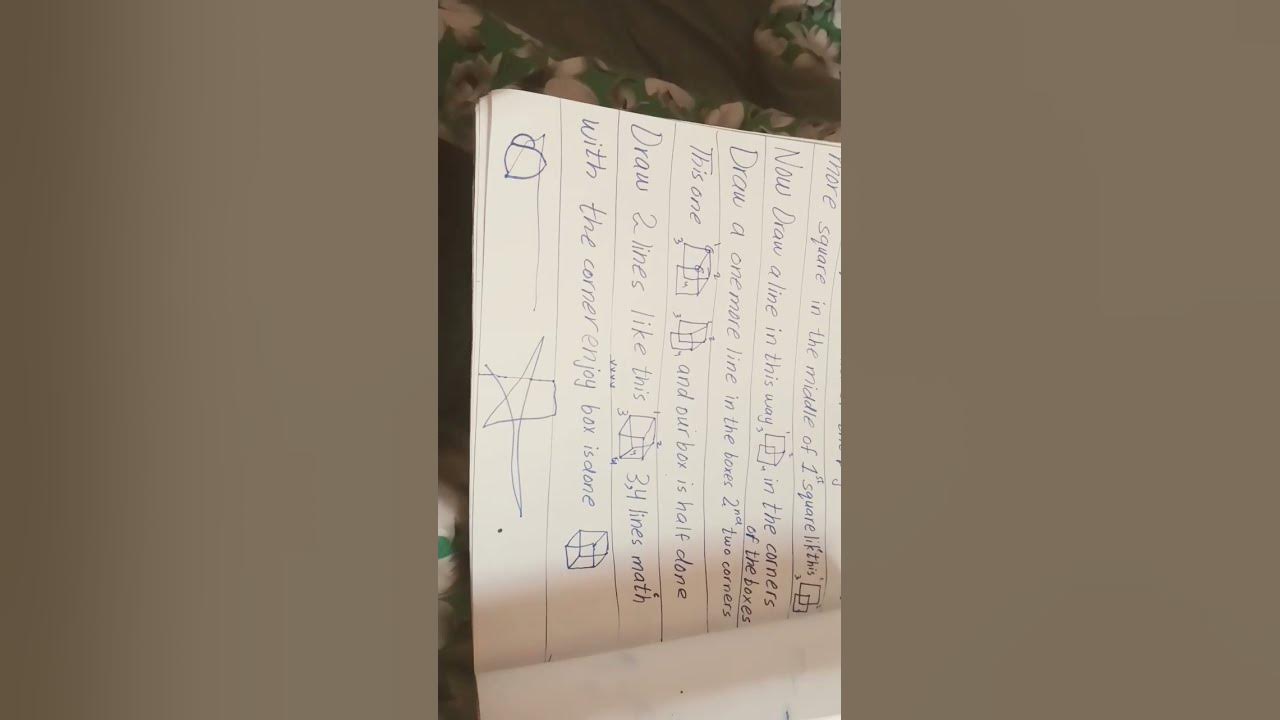 more square in the middle of 1st square like this
Now Draw a line in this way in the corners
of the boxes
Draw a one more line in the boxes 2nd two corners
This one and our box is half done
Draw 2 lines like this 3,4 lines math
with the corner enjoy box is done